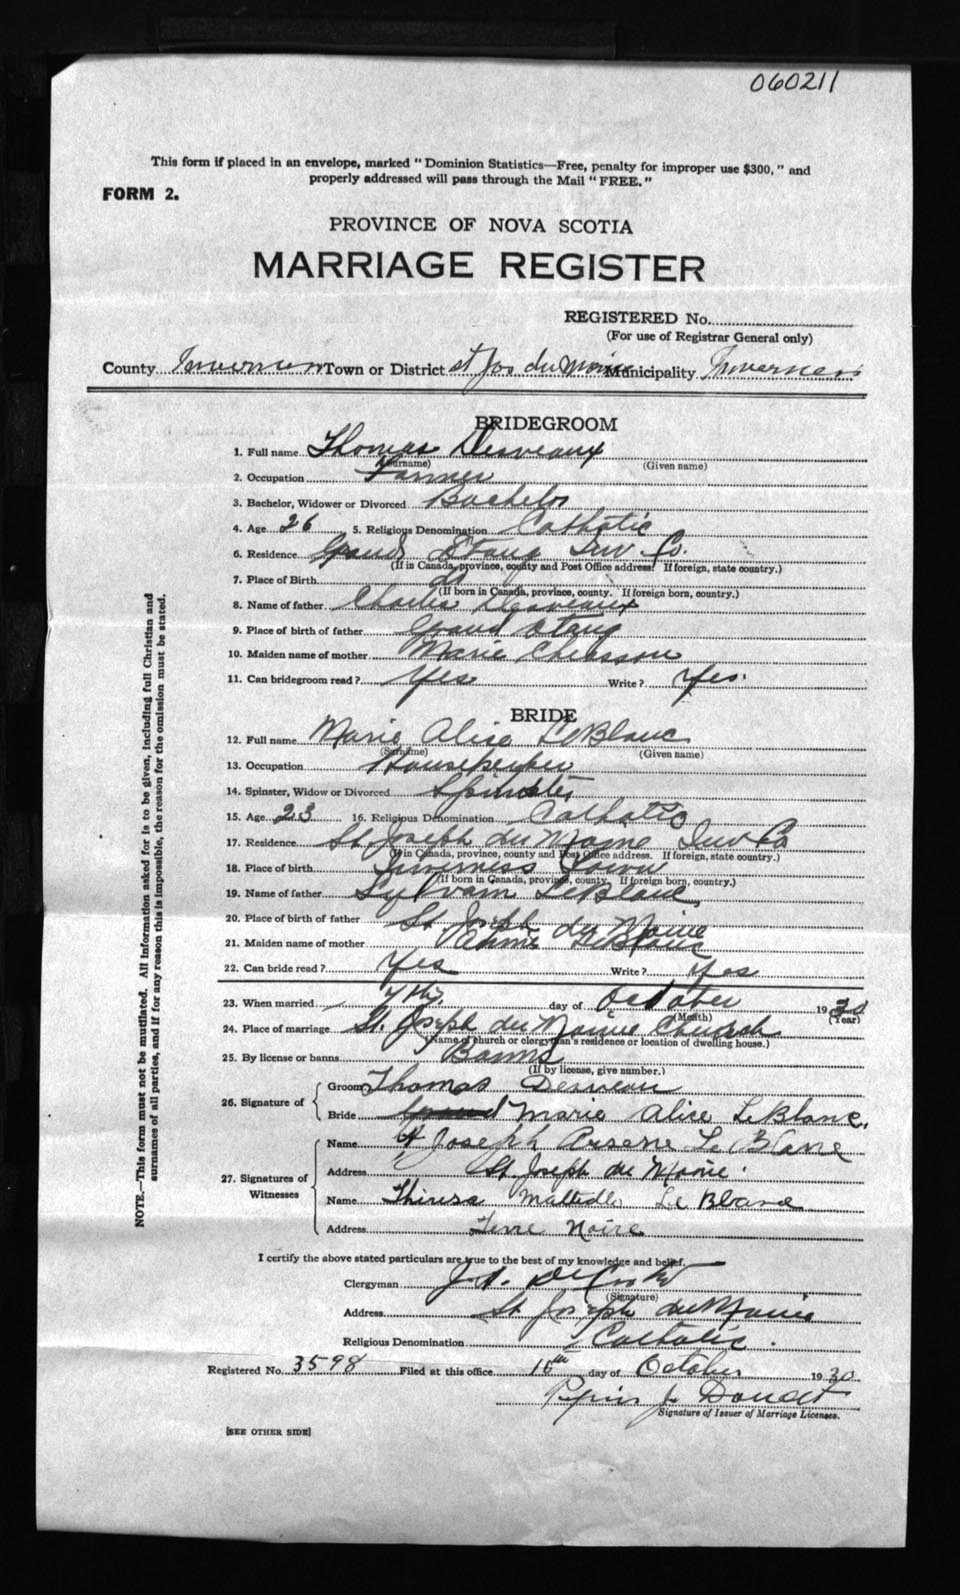 060211
This form if placed in an envelope, marked "Dominion Statistics—Free, penalty for improper use $300," and
properly addressed will pass through the Mail "FREE."
FORM 2.
PROVINCE OF NOVA SCOTIA
MARRIAGE REGISTER
REGISTERED No.
(For use of Registrar General only)
County Inverness Town or District St Jos du Moine Municipality Inverness
BRIDEGROOM
1. Full name Thomas Desveaux
(Surname) (Given name)
2. Occupation Farmer
3. Bachelor, Widower or Divorced Bachelor
4. Age 26 5. Religious Denomination Catholic
6. Residence Grand Etang Inv. Co.
(If in Canada, province, county and Post Office address. If foreign, state country.)
7. Place of Birth do
(If born in Canada, province, county. If foreign born, country.)
8. Name of father Charlie Desveaux
9. Place of birth of father Grand Etang
10. Maiden name of mother Marie Chiasson
11. Can bridegroom read? Yes Write? Yes.
BRIDE
12. Full name Marie Alice LeBlanc
(Surname) (Given name)
13. Occupation Housekeeper
14. Spinster, Widow or Divorced Spinster
15. Age 23 16. Religious Denomination Catholic
17. Residence St. Joseph du Moine Inv Co
(If in Canada, province, county and Post Office address. If foreign, state country.)
18. Place of birth Inverness Town
(If born in Canada, province, county. If foreign born, country.)
19. Name of father Sylvain LeBlanc
20. Place of birth of father St. Joseph du Moine
21. Maiden name of mother LeBlanc
22. Can bride read? Yes Write? Yes
23. When married 7th. day of October 1930
(Month) (Year)
24. Place of marriage St. Joseph du Moine Church
(Name of church or clergyman's residence or location of dwelling house.)
25. By license or banns Banns
(If by license, give number.)
26. Signature of Groom Thomas Desveau
Bride Marie Alice LeBlanc
27. Signatures of Witnesses
Name Joseph Arsene Le Blanc
Address St. Joseph du Moine.
Name Theresa Le Blanc
Address Terre Noire
I certify the above stated particulars are true to the best of my knowledge and belief.
Clergyman J.A. DeCoste
(Signature)
Address St. Joseph du Moine
Religious Denomination Catholic.
Registered No. 3598 Filed at this office 16th day of October 1930
J. Doucet
Signature of Issuer of Marriage Licenses.
[SEE OTHER SIDE]
NOTE.—This form must not be mutilated. All information asked for is to be given, including full Christian and
surnames of all parties, and if for any reason this is impossible, the reason for the omission must be stated.